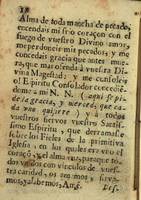 Alma de toda mancha de pecado,
encendais mi frio coraçon con el
fuego de vuestro Divino amor,
me perdoneis mis pecados, y me
concedais gracia antes muera,
que mas ofenda à vuestra Divina
Magestad; y me
el Espiritu Consolador concededme
à N. N. (aqui se pide
la gracia, y merced, que cada
vno quiere) y à todos
vuestros siervos vuestro Santissimo
Espiritu, que derramasteis
sobre los Fieles de la primitiva
Iglesia, en los quales era vno el
coraçon, y el alma vna; para que todos
vnidos con vinculos de vuestra
caridad, os amemos, y
alabemos, Amè.